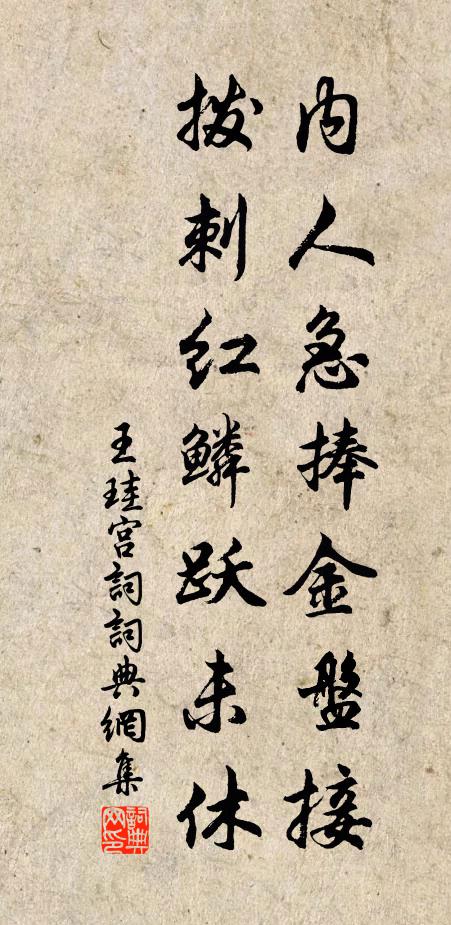 内人急捧金盤接
撥刺红鳞跃未休
王珪宫詞詞典網集
詞典网印